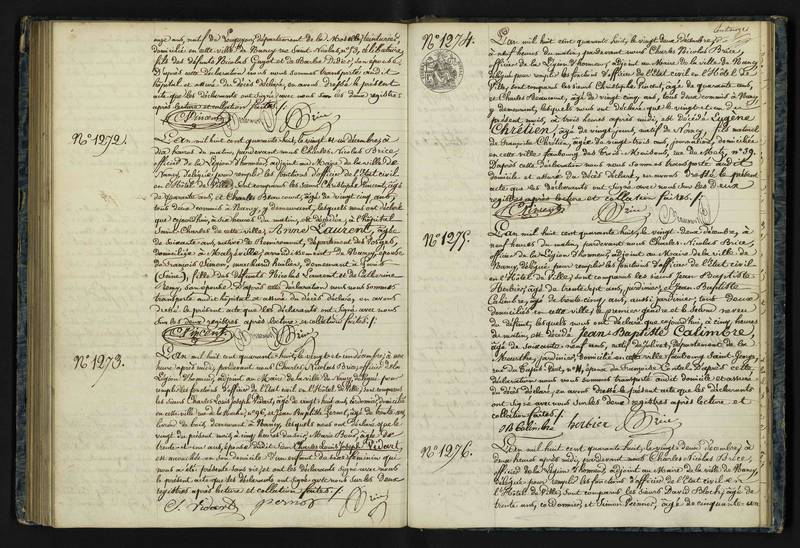 onze ans, natif de département de la Moselle,
domicilié en cette ville de Nancy rue Saint Nicolas, n° 53, célibataire,
fils des défunts Nicolas Guyot et de Barbe Didier, son épouse.
D'après cette déclaration nous nous sommes transporté audit
hôpital et assuré du décès déclaré, en avons dressé le présent
acte que les déclarants ont signé avec nous sur les deux registres
après lecture et collation faites.
C. Vincent Brice
N° 1272.
L'an mil huit cent quarante huit, le vingt et un décembre, à
dix heures du matin, pardevant nous Charles Nicolas Brice
officier de la Légion d'honneur, adjoint au Maire de la ville de
Nancy, délégué pour remplir les fonctions d'officier de l'Etat civil
en l'Hôtel de Ville, sont comparus les sieurs Christophe Vincent, âgé
de quarante ans, et Charles Beaucourt, âgé de vingt cinq ans,
tous deux à Nancy, y demeurant, lesquels nous ont déclaré
que aujourd'hui, à six heures du matin, est décédée, à l'hôpital
Saint Charles de cette ville, Anne Laurent, âgée
de soixante ans, native de Remiremont, département des Vosges,
domiciliée à arrondissement de Nancy, épouse
de François Simon, marchand huilier, demeurant à
fille des défunts Nicolas Laurent et de Catherine
Remy, son épouse. D'après cette déclaration nous nous sommes
transporté audit hôpital et assuré du décès déclaré, en avons
dressé le présent acte que les déclarants ont signé avec nous
sur les deux registres après lecture et collation faites.
C. Vincent Brice
N° 1273.
L'an mil huit cent quarante huit, le vingt et un décembre, à une
heure après midi, pardevant nous Charles Nicolas Brice, officier de la
Légion d'honneur, adjoint au Maire de la ville de Nancy, délégué pour
remplir les fonctions d'officier de l'Etat civil en l'Hôtel de Ville, sont comparus
les sieurs Charles Louis Joseph Vidart, âgé de vingt huit ans, domicilié
en cette ville rue de la n° 96, et Jean Baptiste Pernot, âgé de trente ans,
demeurant à Nancy, lesquels nous ont déclaré que le
vingt du présent mois, à cinq heures du soir, Marie âgée de
trente et un ans, épouse dudit sieur Charles Louis Joseph Vidart,
est accouchée en son domicile d'un enfant du sexe féminin qui
nous a été présenté sans vie, et ont les déclarants signé avec nous
le présent acte sur les deux
registres après lecture et collation faites.
C. Vidart pernot Brice
N° 1274.
L'an mil huit cent quarante huit, le vingt deux décembre,
à neuf heures du matin, pardevant nous Charles Nicolas Brice,
officier de la Légion d'honneur, adjoint au Maire de la ville de Nancy,
délégué pour remplir les fonctions d'officier de l'Etat civil en l'Hôtel de
Ville, sont comparus les sieurs Christophe Vincent, âgé de quarante ans,
et Charles Beaucourt, âgé de vingt cinq ans, tous deux à Nancy,
y demeurant, lesquels nous ont déclaré que le vingt et un du
présent mois, à trois heures après midi, est décédé Eugène
Chrétien, âgé de vingt jours, natif de Nancy, fils naturel
de Françoise Chrétien, âgée de vingt trois ans, journalière, domiciliée
en cette ville faubourg des Trois Maisons, rue du n° 39.
D'après cette déclaration nous nous sommes transporté audit
domicile et assuré du décès déclaré, en avons dressé le présent
acte que les déclarants ont signé avec nous sur les deux
registres après lecture et collation faites.
C. Vincent Brice Beaucourt
N° 1275.
L'an mil huit cent quarante huit, le vingt deux décembre, à
neuf heures du matin, pardevant nous Charles Nicolas Brice,
officier de la Légion d'honneur, adjoint au Maire de la ville de
Nancy, délégué pour remplir les fonctions d'officier de l'Etat civil
en l'Hôtel de Ville, sont comparus les sieurs Jean Baptiste
Herbier, âgé de trente sept ans, jardinier, et Jean Baptiste
Calimbre, âgé de trente cinq ans, aussi jardinier, tous deux
domiciliés en cette ville, le premier gendre et le second neveu
du défunt, lesquels nous ont déclaré que aujourd'hui, à cinq heures
du matin, est décédé Jean Baptiste Calimbre,
âgé de soixante neuf ans, natif de département de la
Meurthe, jardinier, domicilié en cette ville faubourg Saint Georges,
rue du n° 11, époux de Françoise D'après cette
déclaration nous nous sommes transporté audit domicile et assuré
du décès déclaré, en avons dressé le présent acte que les déclarants
ont signé avec nous sur les deux registres après lecture et
collation faites.
JB Calimbre herbier Brice
N° 1276.
L'an mil huit cent quarante huit, le vingt deux décembre, à
deux heures après midi, pardevant nous Charles Nicolas Brice,
officier de la Légion d'honneur, adjoint au Maire de la ville de Nancy,
délégué pour remplir les fonctions d'officier de l'Etat civil en
l'Hôtel de Ville, sont comparus les sieurs David Bloch, âgé de
trente ans, cordonnier, et Simon âgé de cinquante un